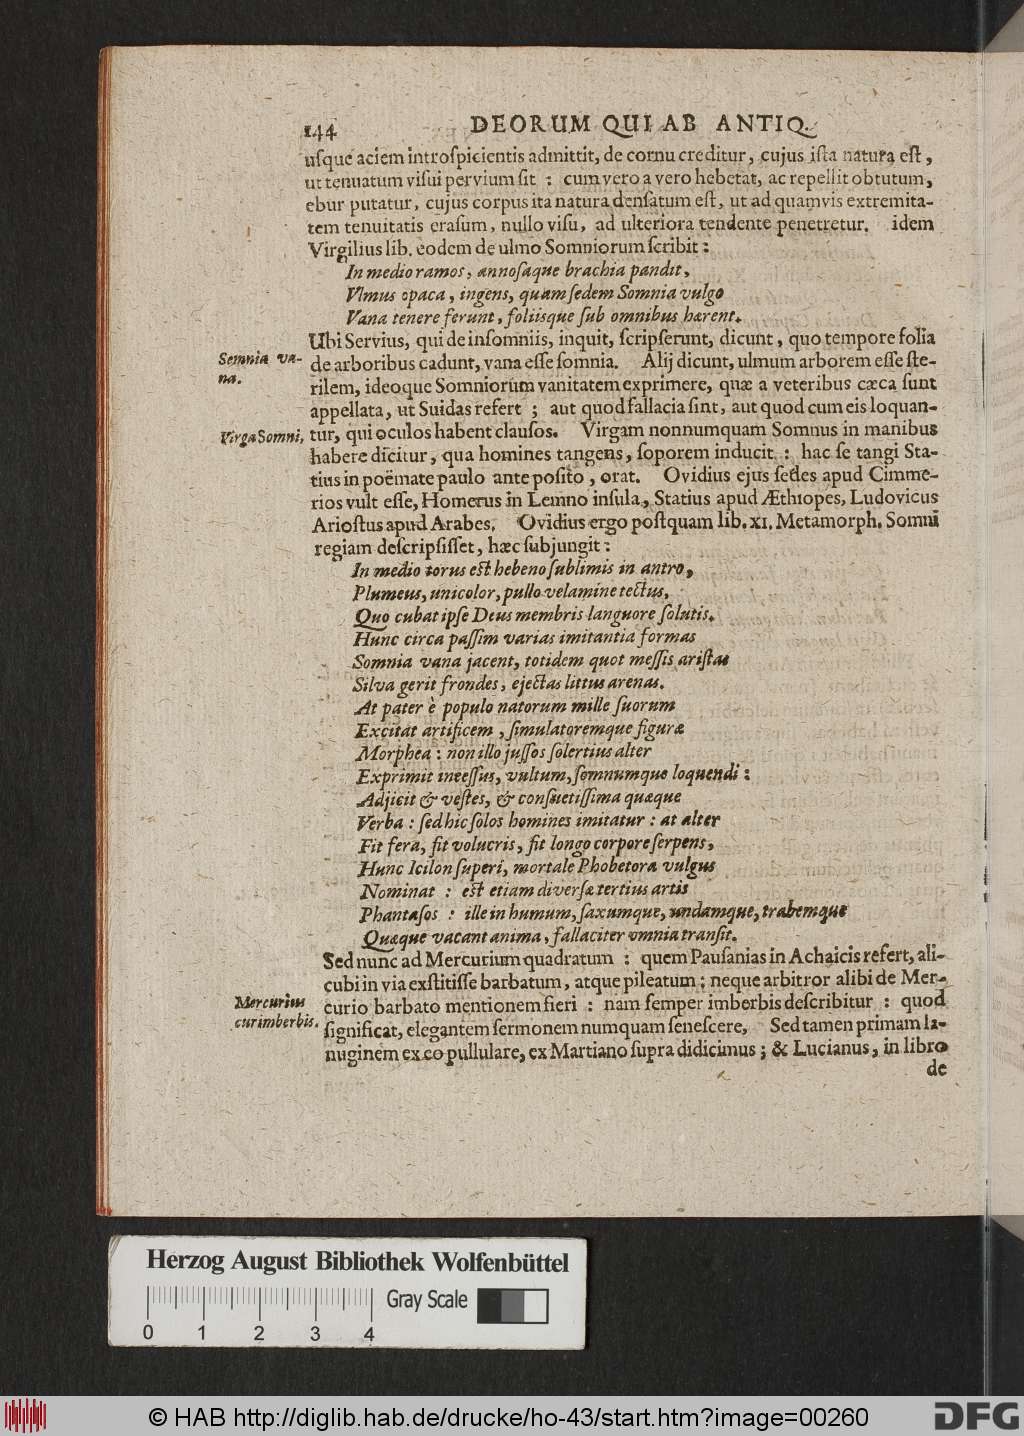 144 DEORUM QUI AB ANTIQ.
usque aciem introspicientis admittit, de cornu creditur, cujus ista natura est,
ut tenuatum visui pervium sit : cum vero a vero hebetat, ac repellit obtutum,
ebur putatur, cujus corpus ita natura densatum est, ut ad quamvis extremita-
tem tenuitatis erasum, nullo visu, ad ulteriora tendente penetretur. idem
Virgilius lib. eodem de ulmo Somniorum scribit :
In medio ramos, annosaque brachia pandit,
Vlmus opaca, ingens, quam sedem Somnia vulgo
Vana tenere ferunt, foliisque sub omnibus hærent.
Ubi Servius, qui de insomniis, inquit, scripserunt, dicunt, quo tempore folia
Semnia va-
na.
de arboribus cadunt, vana esse somnia. Alij dicunt, ulmum arborem esse ste-
rilem, ideoque Somniorum vanitatem exprimere, quæ a veteribus cæca sunt
appellata, ut Suidas refert ; aut quod fallacia sint, aut quod cum eis loquan-
Virga Somni,
tur, qui oculos habent clausos. Virgam nonnumquam Somnus in manibus
habere dicitur, qua homines tangens, soporem inducit : hac se tangi Sta-
tius in poëmate paulo ante posito, orat. Ovidius ejus sedes apud Cimme-
rios vult esse, Homerus in Lemno insula, Statius apud Æthiopes, Ludovicus
Ariostus apud Arabes. Ovidius ergo postquam lib. XI. Metamorph. Somni
regiam descripsisset, hæc subjungit :
In medio torus est hebeno sublimis in antro,
Plumeus, unicolor, pullo velamine tectus,
Quo cubat ipse Deus membris languore solutis.
Hunc circa passim varias imitantia formas
Somnia vana jacent, totidem quot messis aristas
Silva gerit frondes, ejectas littus arenas.
At pater è populo natorum mille suorum
Excitat artificem, simulatoremque figuræ
Morphea : non illo jussos solertius alter
Exprimit incessus, vultum, semnumque loquendi :
Adjicit & vestes, & consuetissima quæque
Verba : sed hic solos homines imitatur : at alter
Fit fera, fit volucris, fit longo corpore serpens,
Hunc Icilon superi, mortale Phobetora vulgus
Nominat : est etiam diversæ tertius artis
Phantasos : ille in humum, saxumque, undamque, trabemque
Quæque vacant anima, fallaciter omnia transit.
Sed nunc ad Mercurium quadratum : quem Pausanias in Achaicis refert, ali-
cubi in via exstitisse barbatum, atque pileatum ; neque arbitror alibi de Mer-
Mercurius
cur imberbis.
curio barbato mentionem fieri : nam semper imberbis describitur : quod
significat, elegantem sermonem numquam senescere, Sed tamen primam la-
nuginem ex eo pullulare, ex Martiano supra didicimus ; & Lucianus, in libro
de
Herzog August Bibliothek Wolfenbüttel
Gray Scale
0 1 2 3 4
© HAB http://diglib.hab.de/drucke/ho-43/start.htm?image=00260
DFG